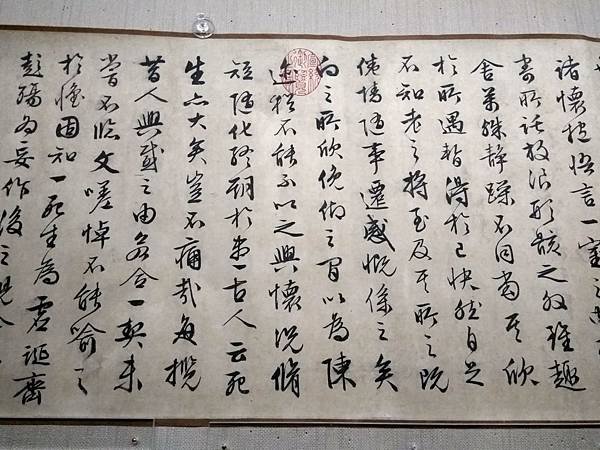 諸懷抱悟言一室之
寄所託放浪形骸之外雖趣
舍萬殊靜躁不同當其欣
於所遇暫得於己快然自足
不知老之將至及其所之既
倦情隨事遷感慨係之矣
向之所欣俛仰之間以為陳
迹猶不能不以之興懷況脩
短隨化終期於盡古人云死
生亦大矣豈不痛哉每攬
昔人興感之由若合一契未
嘗不臨文嗟悼不能喻之
於懷固知一死生為虛誕齊
彭殤為妄作後之視今